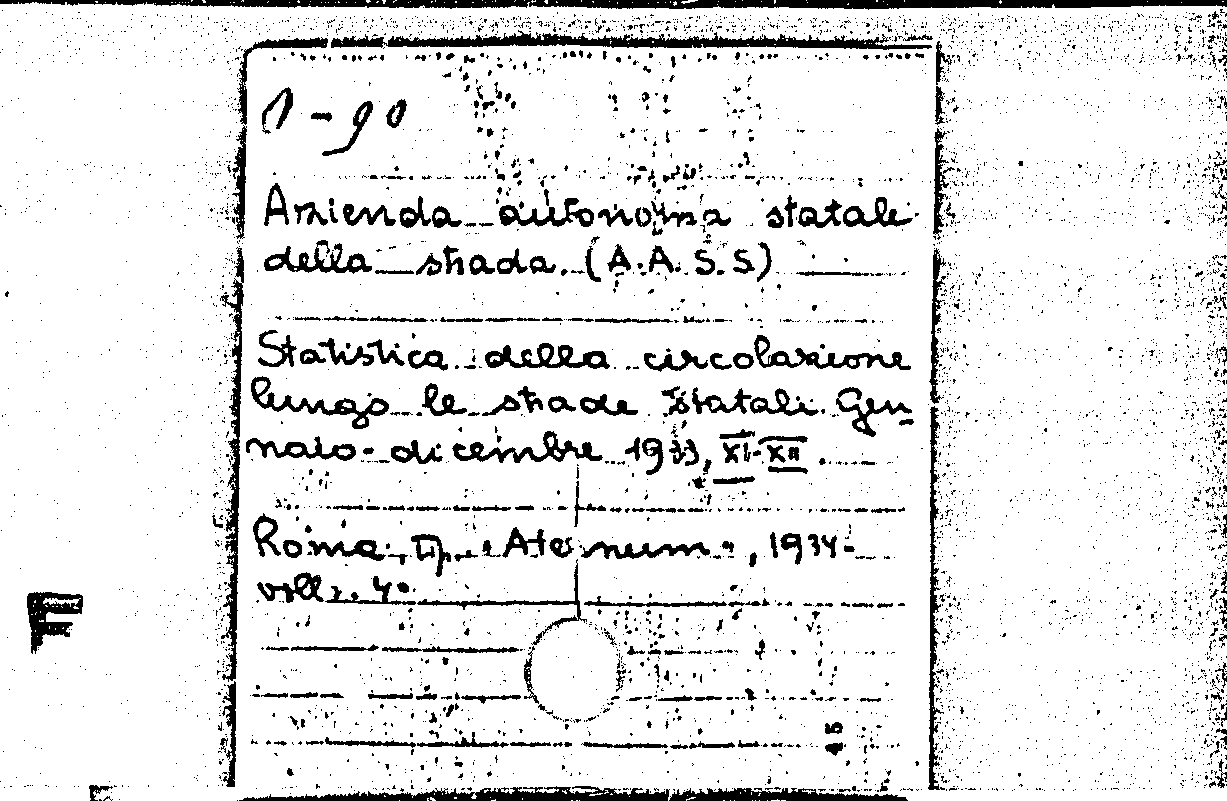 1-90
Azienda autonoma statale
della strada. (A.A.S.S)
Statistica della circolazione
lungo le strade statali. Gen
naio-dicembre 1933, XI-XII.
Roma, Tip. "Aternum", 1934-
voll. 4°
F
15